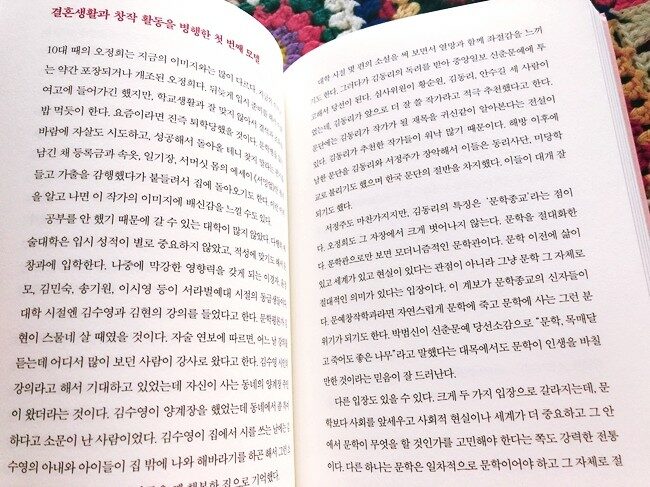 결혼생활과 창작 활동을 병행한 첫 번째 모델
10대 때의 오정희는 지금의 이미지와는 많이 다르다.
는 약간 포장되거나 개조된 오정희다. 뒤늦게 입시 준비를
여고에 들어가긴 했지만, 학교생활과 잘 맞지 않아서 결석을
밥 먹듯이 한다. 요즘이라면 진즉 퇴학당했을 것이다.
바람에 자살도 시도하고, 성공해서 돌아올 테니 찾지 말라는
남긴 채 등록금과 속옷, 일기장, 서머싯 몸의 에세이
들고 가출을 감행했다가 붙들려서 집에 돌아오기도 한다.
을 알고 나면 이 작가의 이미지에 배신감을 느낄 수도 있다.
공부를 안 했기 때문에 갈 수 있는 대학이 많지 않았다.
술대학은 입시 성적이 별로 중요하지 않았고, 적성에 맞기도 해서
창과에 입학한다. 나중에 막강한 영향력을 갖게 되는 이경자,
모, 김민숙, 송기원, 이시영 등이 서라벌예대 시절의 동급생
대학 시절엔 김수영과 김현의 강의를 들었다고 한다. 문학평론가
현이 스물네 살 때였을 것이다. 자술 연보에 따르면, 어느 날 강의를
듣는데 어디서 많이 보던 사람이 강사로 왔다고 한다. 김수영 시인
강의라고 해서 기대하고 있었는데 자신이 사는 동네의 양계장
이 왔더라는 것이다. 김수영이 양계장을 했었는데 동네에서 좀
하다고 소문이 난 사람이었다. 김수영이 집에서 시를 쓰는 날에는
수영의 아내와 아이들이 집 밖에 나와 해바라기를 하곤 해서 그런
집으로 기억했다.
대학 시절 몇 편의 소설을 써 보면서 열망과 함께 좌절감을 느끼
기도 한다. 그러다가 김동리의 독려를 받아 중앙일보 신춘문예에 투
고해서 당선이 된다. 심사위원이 황순원, 김동리, 안수길 세 사람이
었는데, 김동리가 앞으로 더 잘 쓸 작가라고 적극 추천했다고 한다.
문단에는 김동리가 작가가 될 재목을 귀신같이 알아본다는 전설이
있다. 김동리가 추천한 작가들이 워낙 많기 때문이다. 해방 이후에
남한 문단을 김동리와 서정주가 장악해서 이들은 동리사단, 미당학
교로 불리기도 했으며 한국 문단의 절반을 차지했다. 이들이 대개 잘
되기도 했다.
서정주도 마찬가지지만, 김동리의 특징은 '문학종교'라는 점이
다. 오정희도 그 자장에서 크게 벗어나지 않는다. 문학을 절대화한
다. 문학관으로만 보면 모더니즘적인 문학관이다. 문학 이전에 삶이
있고 세계가 있고 현실이 있다는 관점이 아니라 그냥 문학 그 자체로
절대적인 의미가 있다는 입장이다. 이 계보가 문학종교의 신자들이
다. 문예창작학과라면 자연스럽게 문학에 죽고 문학에 사는 그런 분
위기가 되기도 한다. 박범신이 신춘문예 당선소감으로 "문학, 목매달
고 죽어도 좋은 나무"라고 말했다는 대목에서도 문학이 인생을 바칠
만한 것이라는 믿음이 잘 드러난다.
다른 입장도 있을 수 있다. 크게 두 가지 입장으로 갈라지는데, 문
학보다 사회를 앞세우고 사회적 현실이나 세계가 더 중요하고 그 안
에서 문학이 무엇을 할 것인가를 고민해야 한다는 쪽도 강력한 전통
이다. 다른 하나는 문학은 일차적으로 문학이어야 하고 그 자체로 절